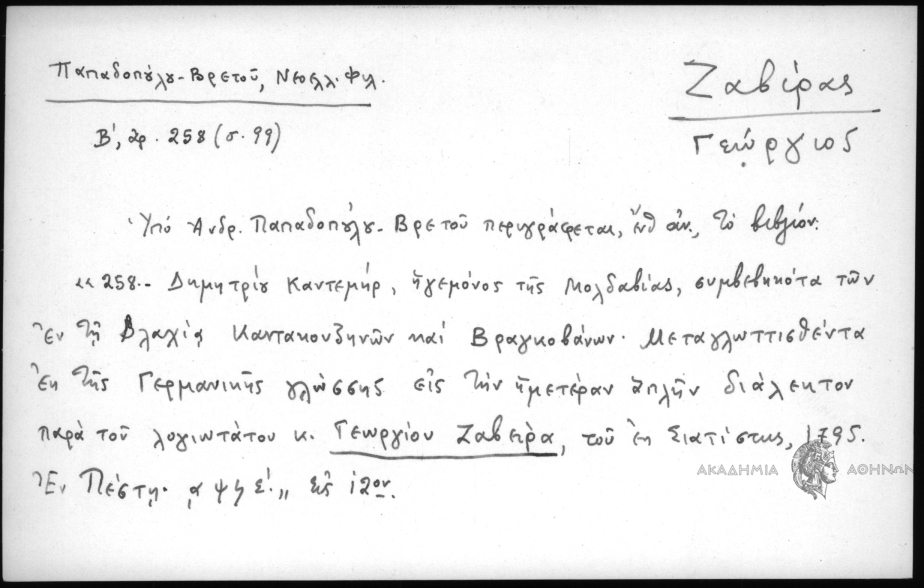 Παπαδοπούλου-Βρετοῦ, Νεοελλ. Φιλ.
Ζαβίρας
Γεώργιος
Β', ἀρ. 258 (σ. 99)
Ὑπό Ἀνδρ. Παπαδοπούλου-Βρετοῦ περιγράφεται, ἔνθ' ἀν., τὸ βιβλίον:
«258.- Δημητρίου Καντεμήρ, ἡγεμόνος τῆς Μολδαβίας, συμβεβηκότα τῶν
ἐν τῇ Βλαχίᾳ Καντακουζηνῶν καί Βραγκοβάνων. Μεταγλωττισθέντα
ἐκ τῆς Γερμανικῆς γλώσσης εἰς τὴν ἡμετέραν ἁπλῆν διάλεκτον
παρὰ τοῦ λογιωτάτου κ. Γεωργίου Ζαβειρᾶ, τοῦ ἐκ Σιατίστης, 1795.
Ἐν Πέστῃ. ͵αψϟέ.„ εἰς 12ον.
ΑΚΑΔΗΜΙΑ ΑΘΗΝΩΝ